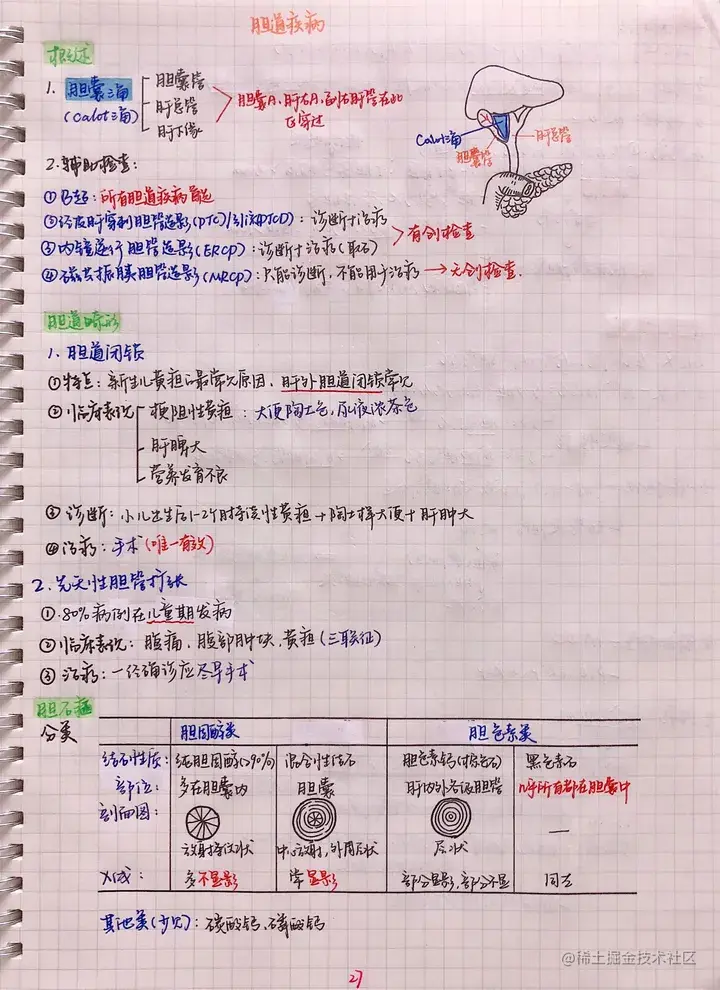 胆道疾病
概述
1. 胆囊三角 胆囊管
(Calot三角) 肝总管
肝下缘
胆囊A、肝右A、副右肝管在此
区穿过
Calot三角
胆囊管
肝总管
2. 辅助检查:
①B超: 所有胆道疾病首选
②经皮肝穿刺胆管造影(PTC)/引流(PTCD): 诊断+治疗
③内镜逆行胆管造影(ERCP): 诊断+治疗(取石)
有创检查
④磁共振胰胆管造影(MRCP): 只能诊断, 不能用于治疗→无创检查.
胆道畸形
1. 胆道闭锁
①特点: 新生儿黄疸的最常见原因, 肝外胆道闭锁常见
②临床表现 梗阻性黄疸: 大便陶土色, 尿液浓茶色
肝脾大
营养发育不良
③诊断: 小儿出生后1-2个月持续性黄疸+陶土样大便+肝肿大
④治疗: 手术(唯一有效)
2. 先天性胆管扩张
①80%病例在儿童期发病
②临床表现: 腹痛、腹部肿块、黄疸(三联征)
③治疗: 一经确诊应尽早手术
胆石症
分类 胆固醇类 胆色素类
结石性质: 纯胆固醇(>90%) 混合性结石 胆色素钙(棕色石) 黑色素石
部位: 多在胆囊内 胆囊 肝内外各级胆管 几乎所有都在胆囊中
剖面图: —
放射排列状 中心放射, 外周层状 层状
X线: 多不显影 常显影 部分显影, 部分不显 同左
其他类(少见): 碳酸钙、磷酸钙
27
@稀土掘金技术社区